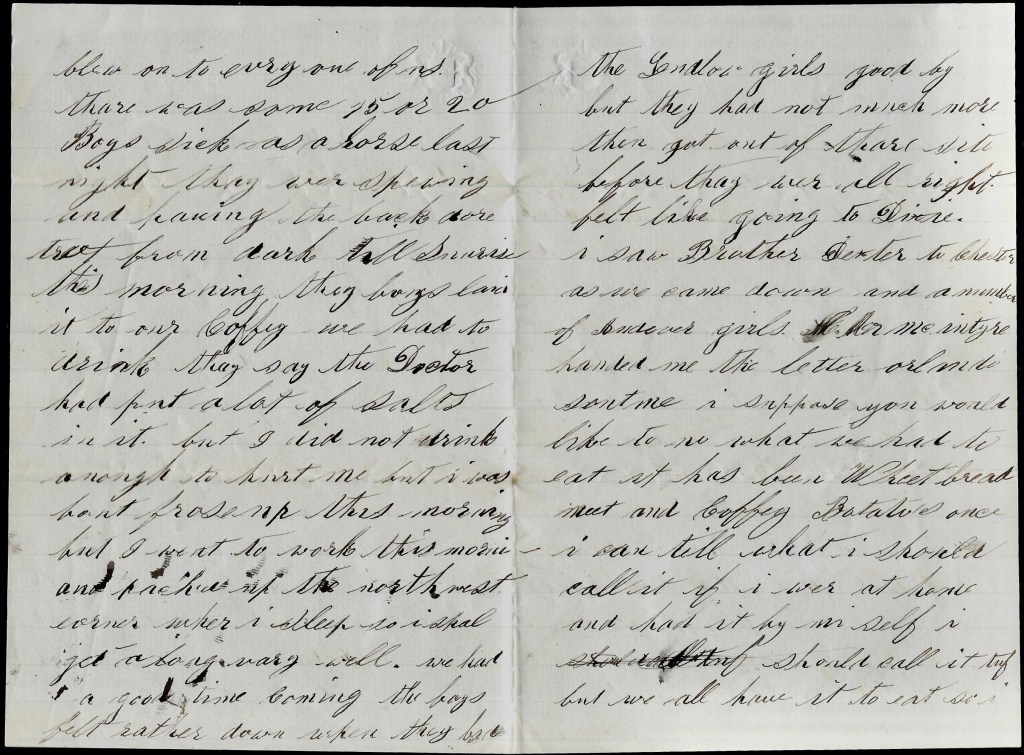 blew on to evry one of us.
thare was some 15 or 20
Boys sick as a horse last
night thay wer spewing
and haveing the back dore
trot from dark till Sunrise
this morning they boys lais
it to our Coffey we had to
drink thay say the Doctor
had put a lot of salts
in it. but I did not drink
anough to hurt me but i was
bout frose up this morning
but I went to work this morni
and packed up the north west
corner wher i sleep so i shal
get along vary well. we had
a good time Coming the boys
felt rather down when they bid
the girls good by
but they had not much more
then got out of thare site
before thay wer all right.
felt like going to Dixie.
i saw Brother Dexter to Chester
as we came down and a number
of Andover girls mcintyre
handed me the letter orlando
sent me i suppose you would
like to no what we had to
eat it has been Wheet bread
meet and Coffey Potatoes once
i can tell what i should
call it if i wer at home
and had it by mi self i
should call it tuf
but we all have it to eat so i